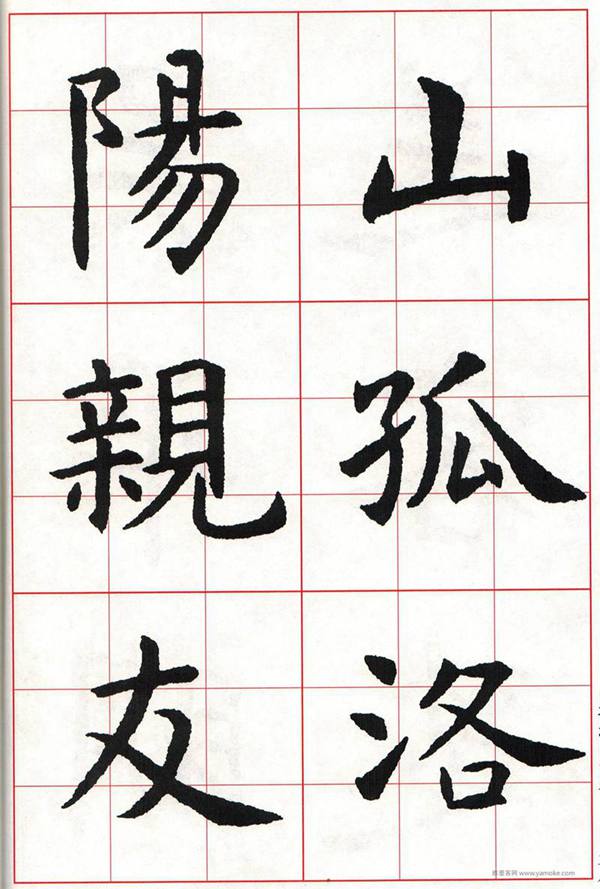 山孤洛
陽親友
雅墨客网 www.yamoke.com